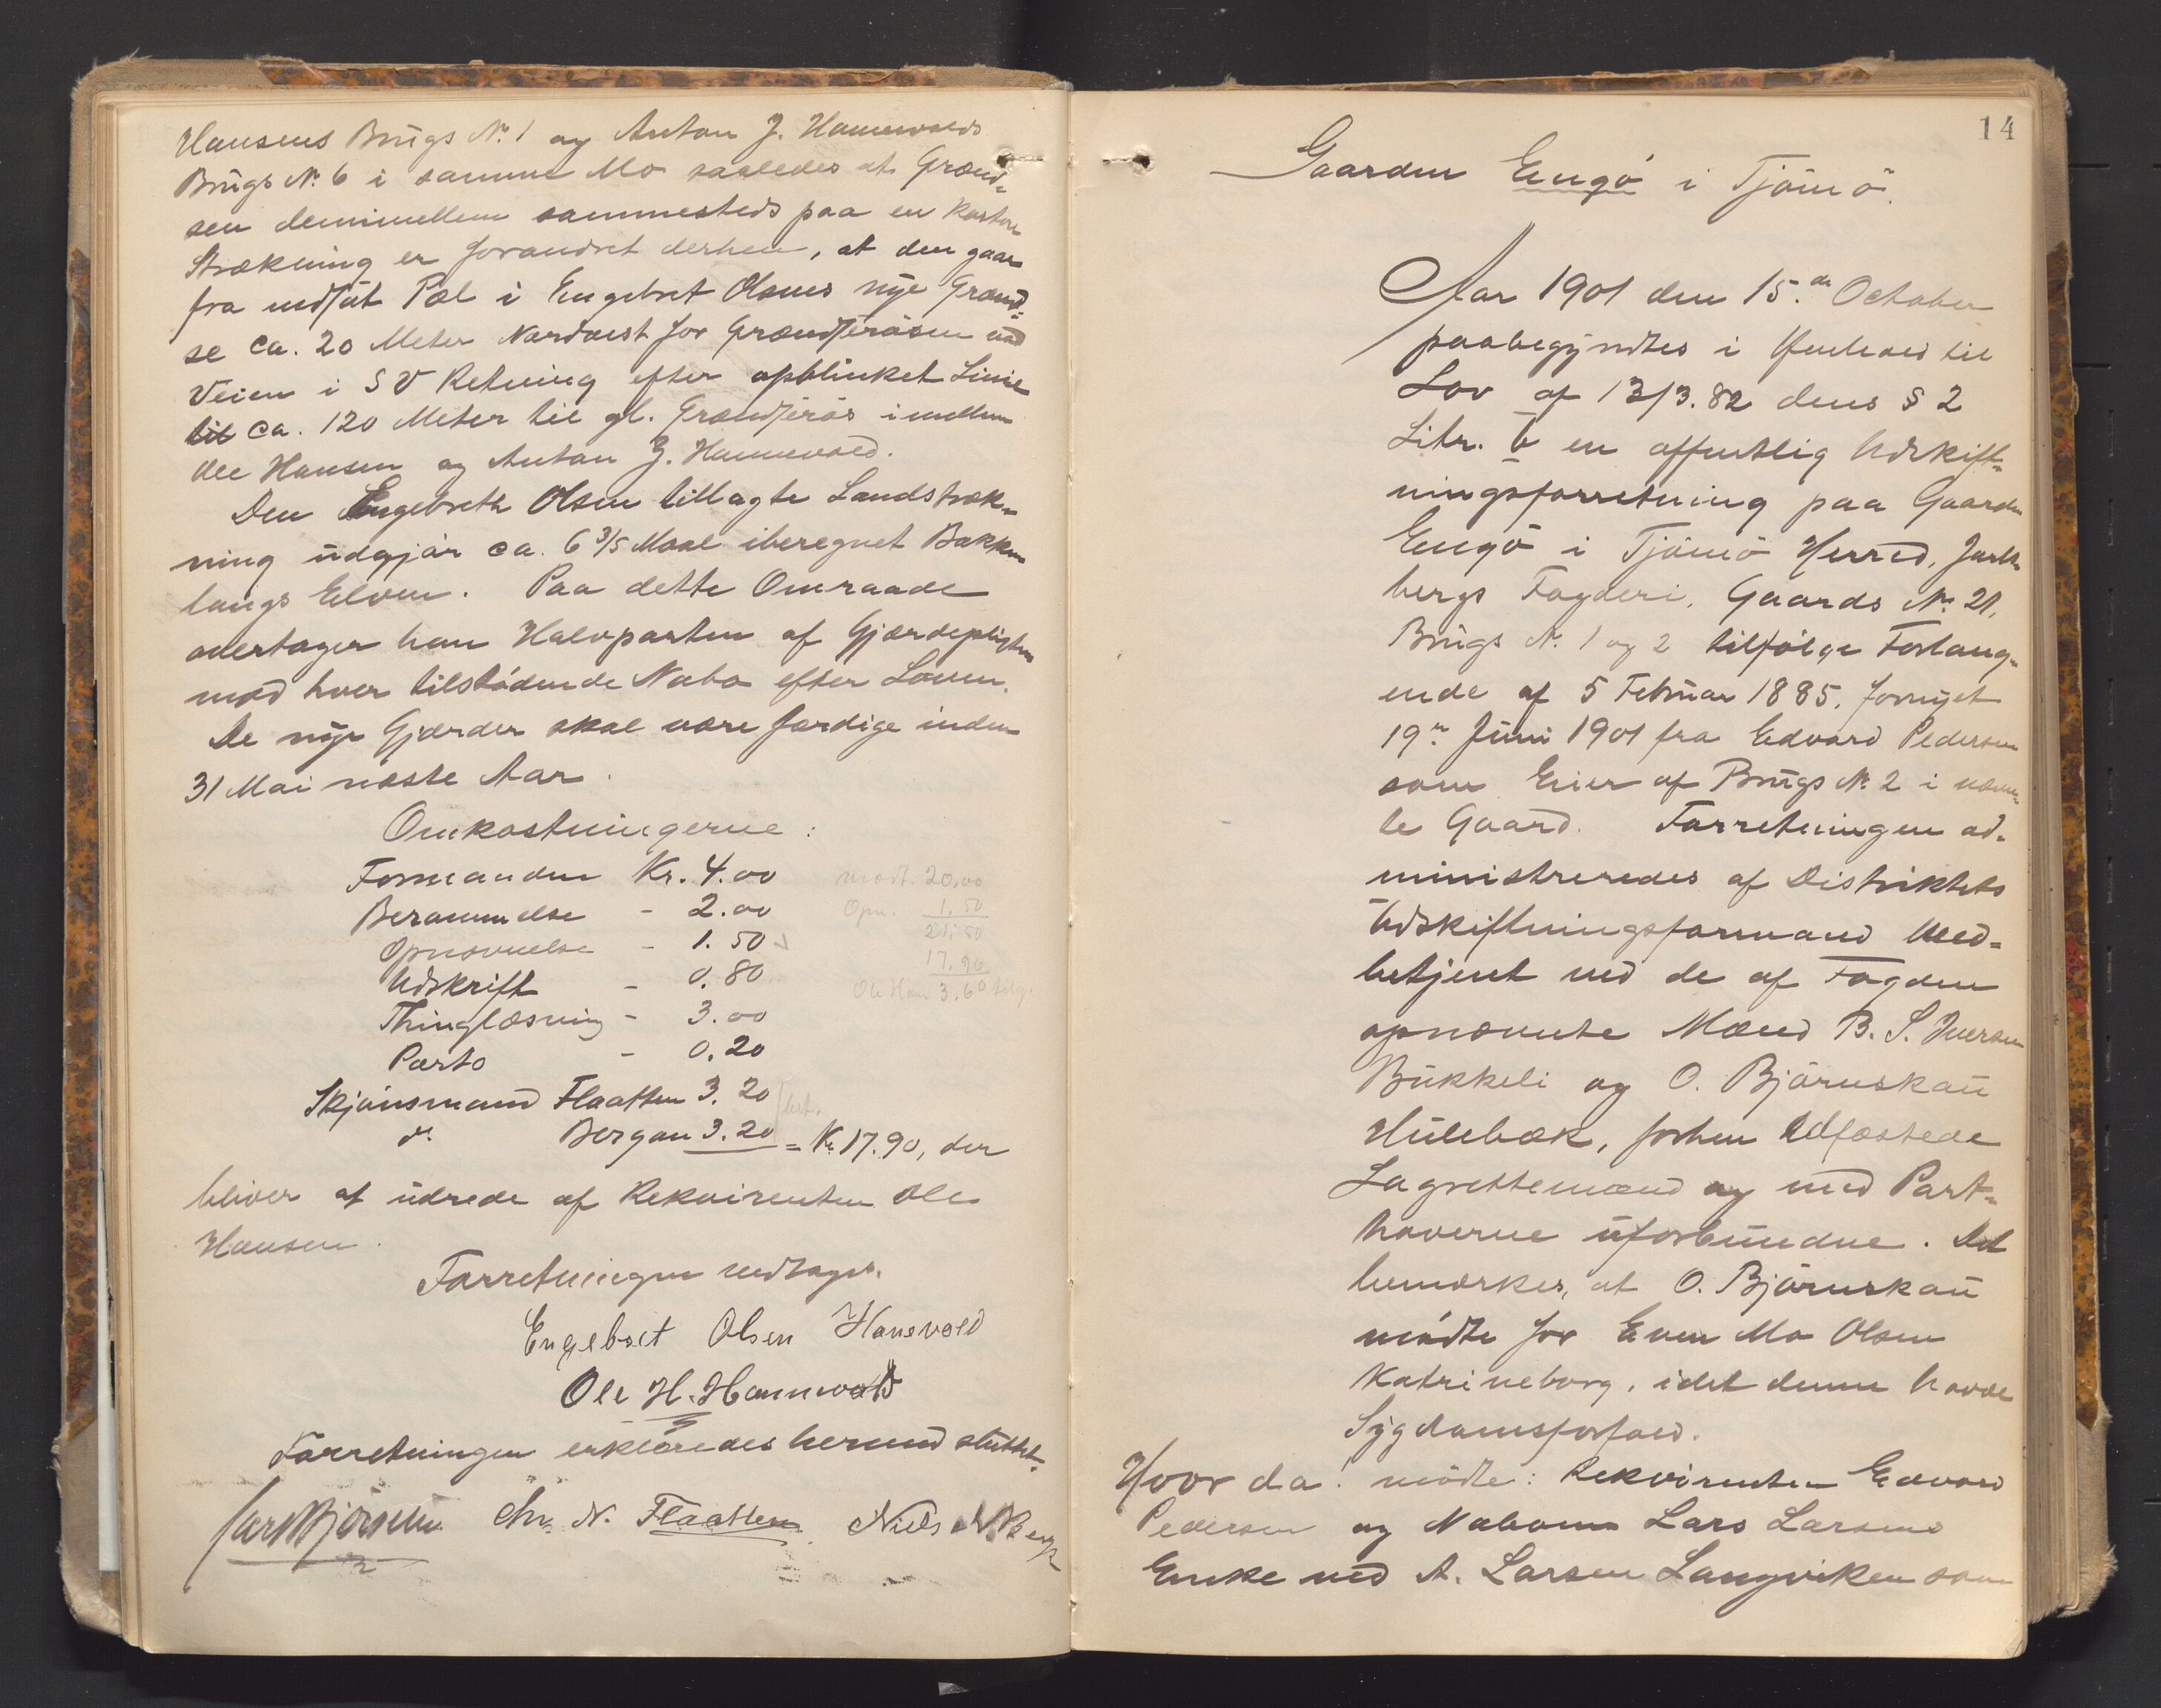 Hansens Brugs No. 1 og Anton J. Hannevolds
Brugs No. 6 i samme Mo saaledes at Grænd=
sen demimellem sammesteds paa en kortere
Strækning er forandret derhen, at den gaar
fra nedsat Pæl i Engebret Olsens nye Grænd=
se ca. 20 Meter Nordvest for Grændserösen ved
Veien i SV Retning efter opblinket Linie
til ca. 120 Meter til gl. Grændserös imellem
Ole Hansen og Anton J. Hannevold.
Den Engebreth Olsen tillagte Landstræk=
ning udgjör ca. 6 3/5 Maal iberegnet Bakken
langs Elven. Paa dette Omraade
overtager han Halvparten af Gjærdepligten
mod hver tilstödende Nabo efter Loven.
De nye Gjærder skal være færdige inden
31 Mai næste Aar.
Omkostningerne:
Formanden Kr. 4.00
Berammelse - 2.00
Opnævnelse - 1.50
Udskrift - 0.80
Thinglæsning - 3.00
Porto - 0.20
Skjönsmand Flaatten 3.20
do. Bergan 3.20 = Kr. 17.90, der
modt. 20,00
Opn. 1,50
21,50
17,90
Ole Han 3.60
bliver at udrede af Rekvirenten Ole
Hansen.
Forretningen vedtages.
Engebret Olsen Hanevold
Ole H. Hannevold
Forretningen erklæredes hermed sluttet.
Chr. N. Flaatten Niels
14
Gaarden Engö i Tjömö.
Aar 1901 den 15.de October
paabegyndtes i Henhold til
Lov af 13/3.82 dens § 2
Litr. b en offentlig Udskift=
ningsforretning paa Gaarden
Engö i Tjömö Herred, Jarls=
bergs Fogderi, Gaards No. 21,
Brugs No. 1 og 2 tilfölge Forlang=
ende af 5 Februar 1885, fornyet
19de Juni 1901 fra Edvard Pedersen
som Eier af Brugs No. 2 i nævn=
te Gaard. Forretningen ad=
ministreredes af Distriktets
Udskiftningsformand med=
betjent ved de af Fogden
opnævnte Mænd B. S. Iversen
Bukkeli og O. Björnskau
Hulebæk, forhen edfæstede
Lagrettemænd og med Part=
haverne uforbundne. Det
bemærkes, at O. Björnskau
mödte for Even Mo Olsen
Katrineborg, idet denne havde
Sygdomsforfald.
Hvor da! mödte: Rekvirenten Edvard
Pedersen og Naboen Lars Larsens
Enke ved A. Larsen Langviken som